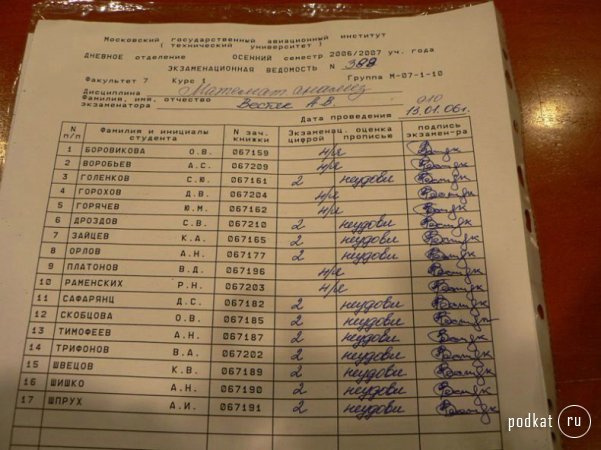 Московский государственный авиационный институт
( технический университет )
ДНЕВНОЕ отделение ОСЕННИЙ семестр 2006/2007 уч. года
ЭКЗАМЕНАЦИОННАЯ ВЕДОМОСТЬ N 388
Факультет 7 Курс 1 Группа М-07-1-10
Дисциплина Математ анализ
Фамилия, имя, отчество
экзаменатора Вестек А.В. 010
Дата проведения 13.01.06г.
N п/п Фамилия и инициалы студента N зач. книжки Экзаменац. оценка цифрой прописью подпись экзамен-ра
1 БОРОВИКОВА О.В. 067159 н/я
2 ВОРОБЬЕВ А.С. 067209 н/я
3 ГОЛЕНКОВ С.Ю. 067161 2 неудовл
4 ГОРОХОВ Д.В. 067204 н/я
5 ГОРЯЧЕВ Ю.М. 067162 н/я
6 ДРОЗДОВ С.В. 067210 2 неудовл
7 ЗАЙЦЕВ К.А. 067165 2 неудовл
8 ОРЛОВ А.Н. 067177 2 неудовл
9 ПЛАТОНОВ В.Д. 067196 н/я
10 РАМЕНСКИХ Р.Н. 067203 н/я
11 САФАРЯНЦ Д.С. 067182 2 неудовл
12 СКОБЦОВА О.В. 067185 2 неудовл
13 ТИМОФЕЕВ А.Н. 067187 2 неудовл
14 ТРИФОНОВ В.А. 067202 2 неудовл
15 ШВЕЦОВ К.В. 067189 2 неудовл
16 ШИШКО А.Н. 067190 2 неудовл
17 ШПРУХ А.И. 067191 2 неудовл
podkat ru